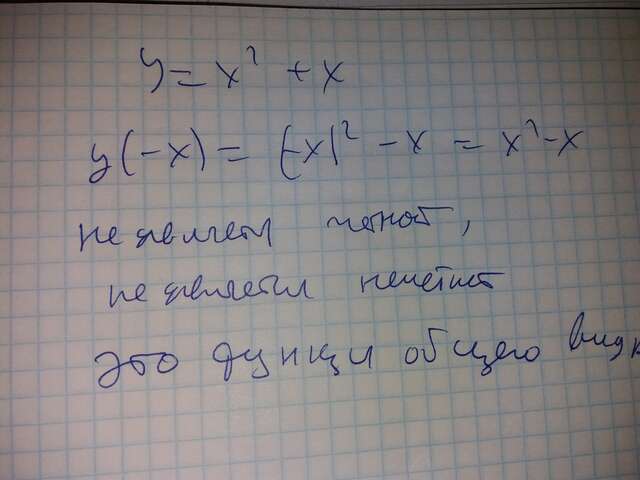 y = x² + x
y(-x) = (-x)² - x = x² - x
не является четной,
не является нечетной
это функци общего вида